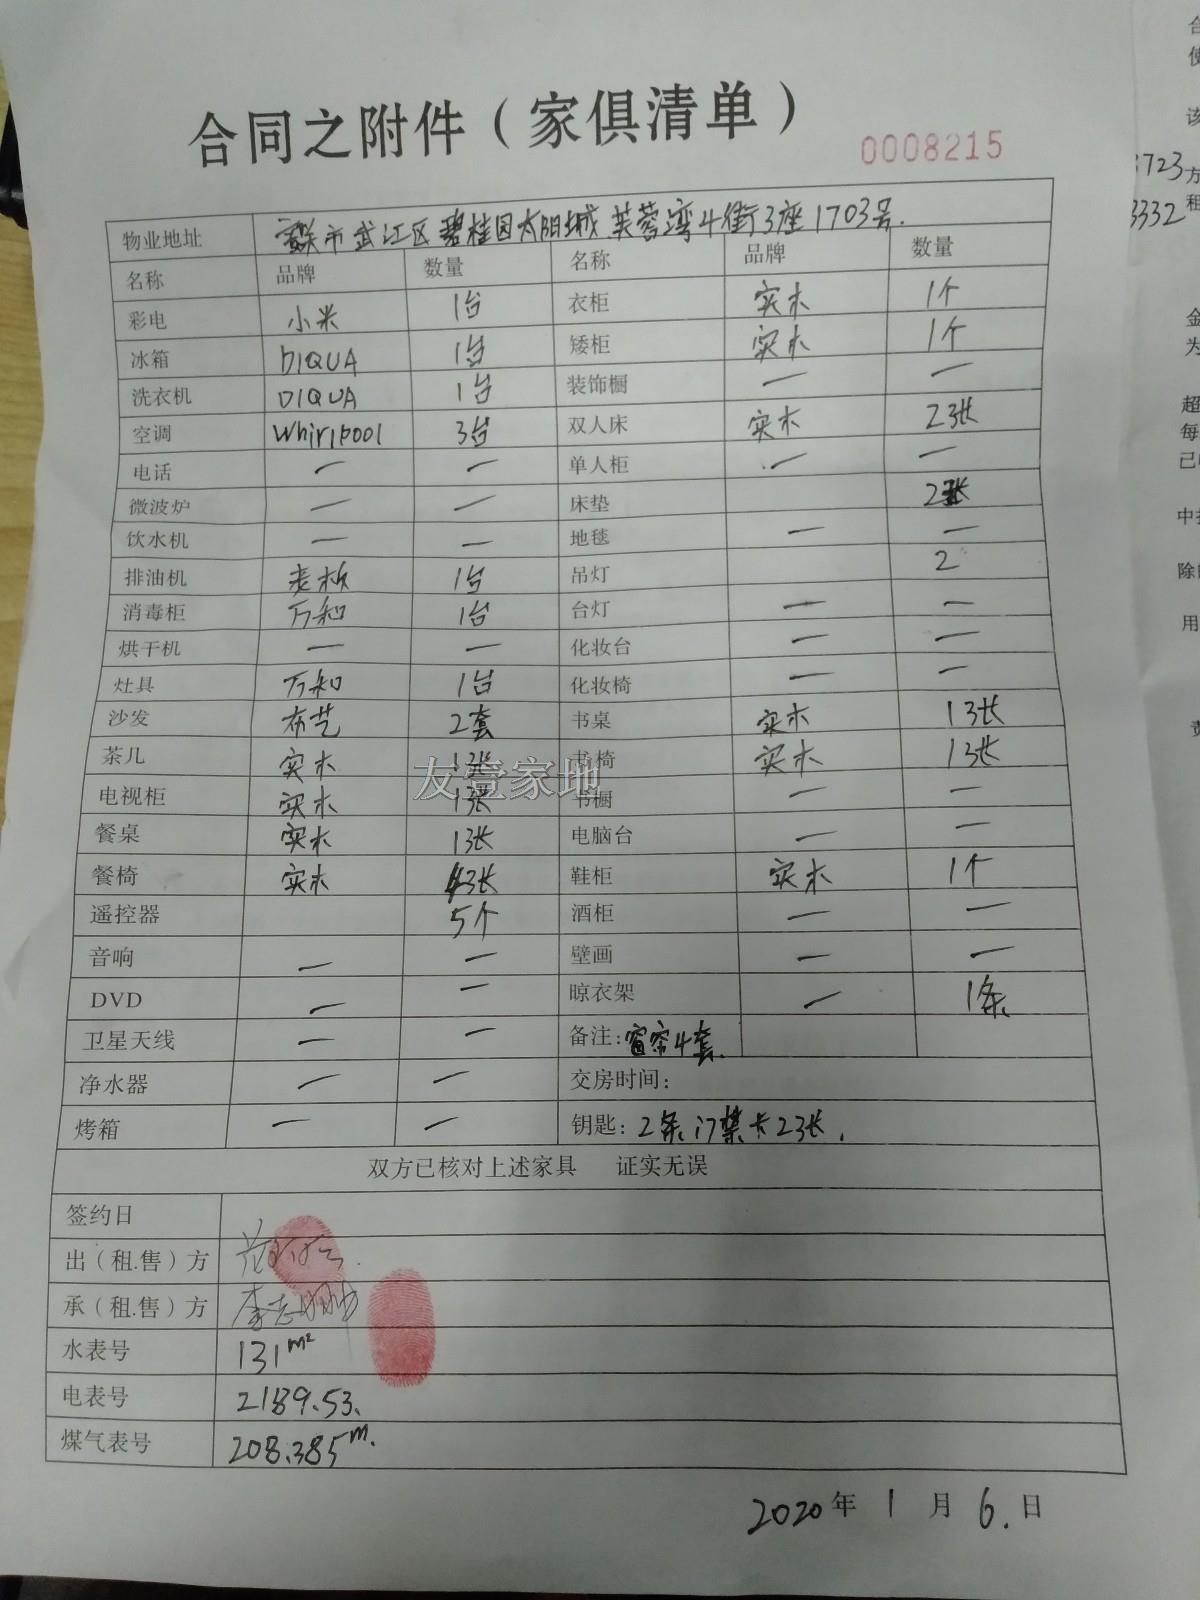 合同之附件（家俱清单）
0008215
物业地址 韶关市武江区碧桂园太阳城芙蓉湾4街3座1703号.
名称 品牌 数量 名称 品牌 数量
彩电 小米 1台 衣柜 实木 1个
冰箱 DIQUA 1台 矮柜 实木 1个
洗衣机 DIQUA 1台 装饰橱 — —
空调 Whirlpool 3台 双人床 实木 2张
电话 — — 单人柜 — —
微波炉 — — 床垫 2张
饮水机 — — 地毯 — —
排油机 1台 吊灯 2
消毒柜 万和 1台 台灯 — —
烘干机 — — 化妆台 — —
灶具 万和 1台 化妆椅 — —
沙发 布艺 2套 书桌 实木 1张
茶几 实木 1张 书椅 实木 1张
电视柜 实木 1张 书橱 — —
餐桌 实木 1张 电脑台 — —
餐椅 实木 张 鞋柜 实木 1个
遥控器 5个 酒柜 — —
音响 — — 壁画 — —
DVD — — 晾衣架 — 1条
卫星天线 — — 备注：窗帘4套.
净水器 — — 交房时间：
烤箱 — — 钥匙：2条、门禁卡2张.
双方已核对上述家具 证实无误
签约日
出（租.售）方
承（租.售）方
水表号 131m²
电表号 2189.53.
煤气表号 208.385m.
2020年1月6.日
友壹家地
合
使
该
1723方
3332租
金
为
超
每
已
中
除
用